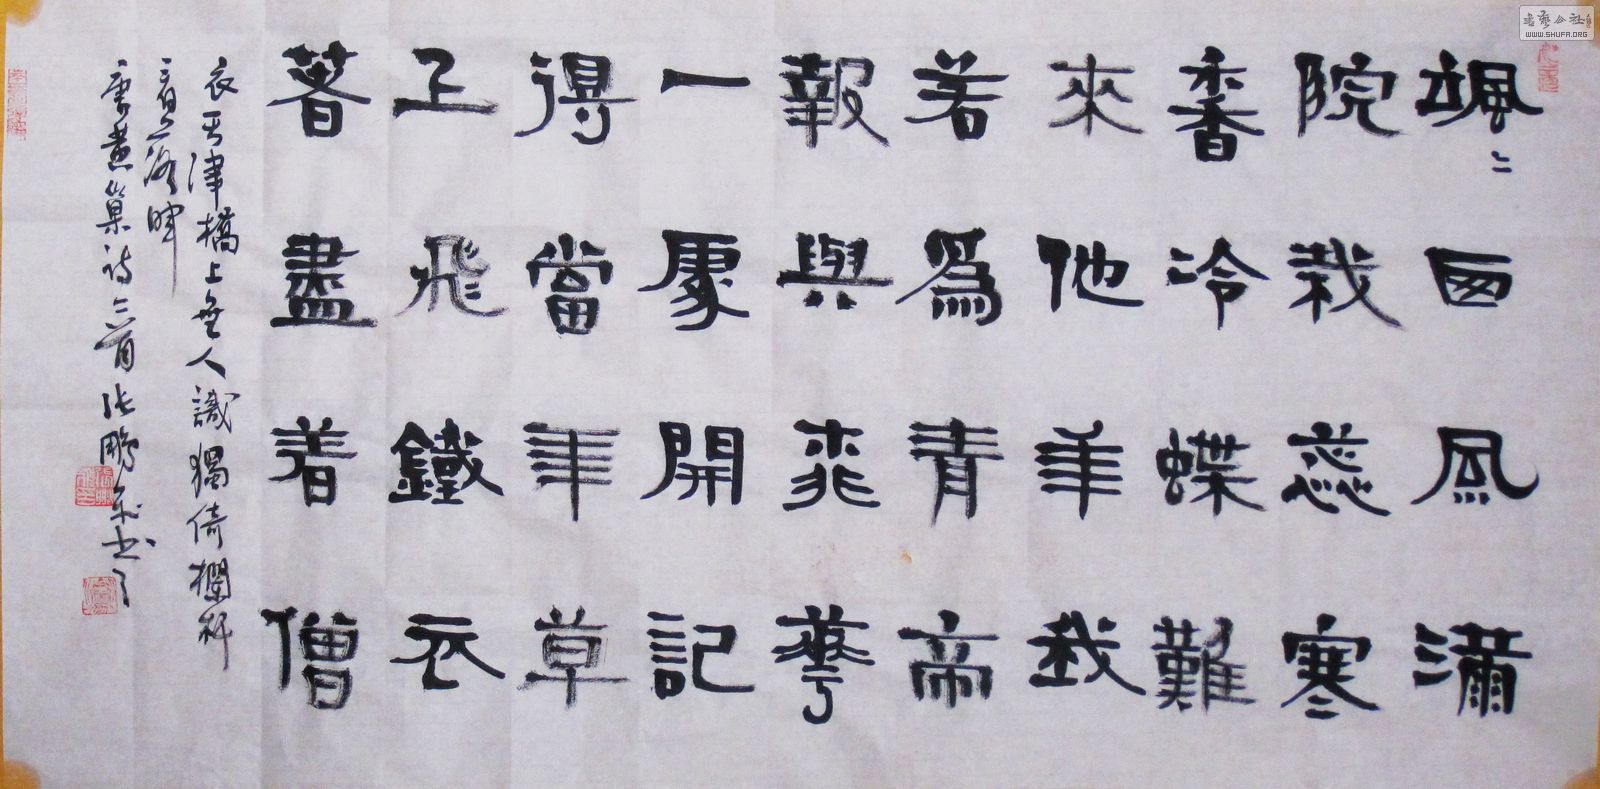 颯〻西風滿
院栽蕊寒
香冷蝶難
來他年我
若為青帝
報與桃華
一處開記
得當年草
上飛鐵衣
著盡着僧
衣天津橋上無人識獨倚欄杆
看落暉
唐黃巢詩二首張鵬書
書藝公社
WWW.SHUFA.ORG